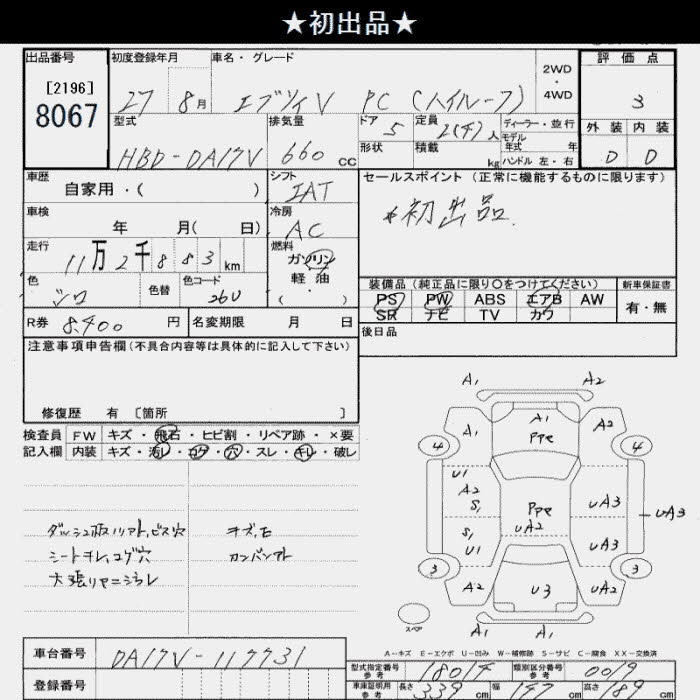 ★初出品★
出品番号 初度登録年月 車名・グレード 2WD・4WD 評価点
[2196]
8067
27 8月 エブリイV PC (ハイルーフ) 3
型式 排気量 ドア 定員 ディーラー・並行 外装 内装
HBD-DA17V 660cc 5 2(4)人 モデル年式 年 D D
形状 積載 kg ハンドル 左・右
車歴 シフト セールスポイント (正常に機能するものに限ります)
自家用・( ) IAT
*初出品
車検 年 月( 日) 冷房 AC
走行 11万2千883km 燃料 ガソリン 軽油 ( ・ )
色 シロ 色替 色コード 26U
装備品 (純正品に限り〇をつけてください) 新車保証書
PS PW ABS エアB AW 有・無
SR ナビ TV カワ
R券 8,400円 名変期限 月 日
後日品
注意事項申告欄(不具合内容等は具体的に記入して下さい)
修復歴 有 [箇所 ]
検査員 FW キズ・飛石・ヒビ割・リペア跡・×要
記入欄 内装 キズ・汚レ・コゲ・穴・スレ・キレ・破レ
A1 A2
A1 A1 A2
PPe
4 4
U1 A2 S1 PPe UA3 UA3
UA2
S1 U1 UA3
3 3
A2 U3 UA2
スペア A1 A1
ダッシュ取リアト,ビス穴 キズ,モ
シートキレ,コゲ穴 カンバンアト
天張リヤニヨゴレ
A-キズ E-エクボ U-凹み W-補修跡 S-サビ C-腐食 XX-交換済
車台番号 DA17V-117731
登録番号
型式指定番号 参考 18014 類別区分番号 参考 0019
車庫証明用 参考 長さ 339cm 幅 147cm 高さ 189cm